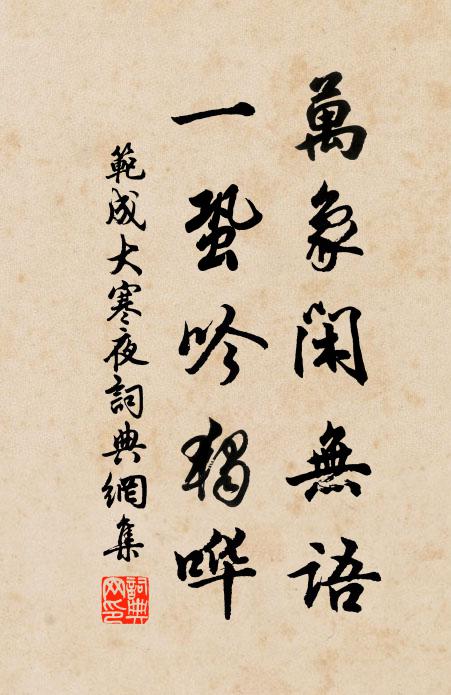 萬象閑無語
一蛩吟獨哗
範成大寒夜詞典網集
詞典
网印